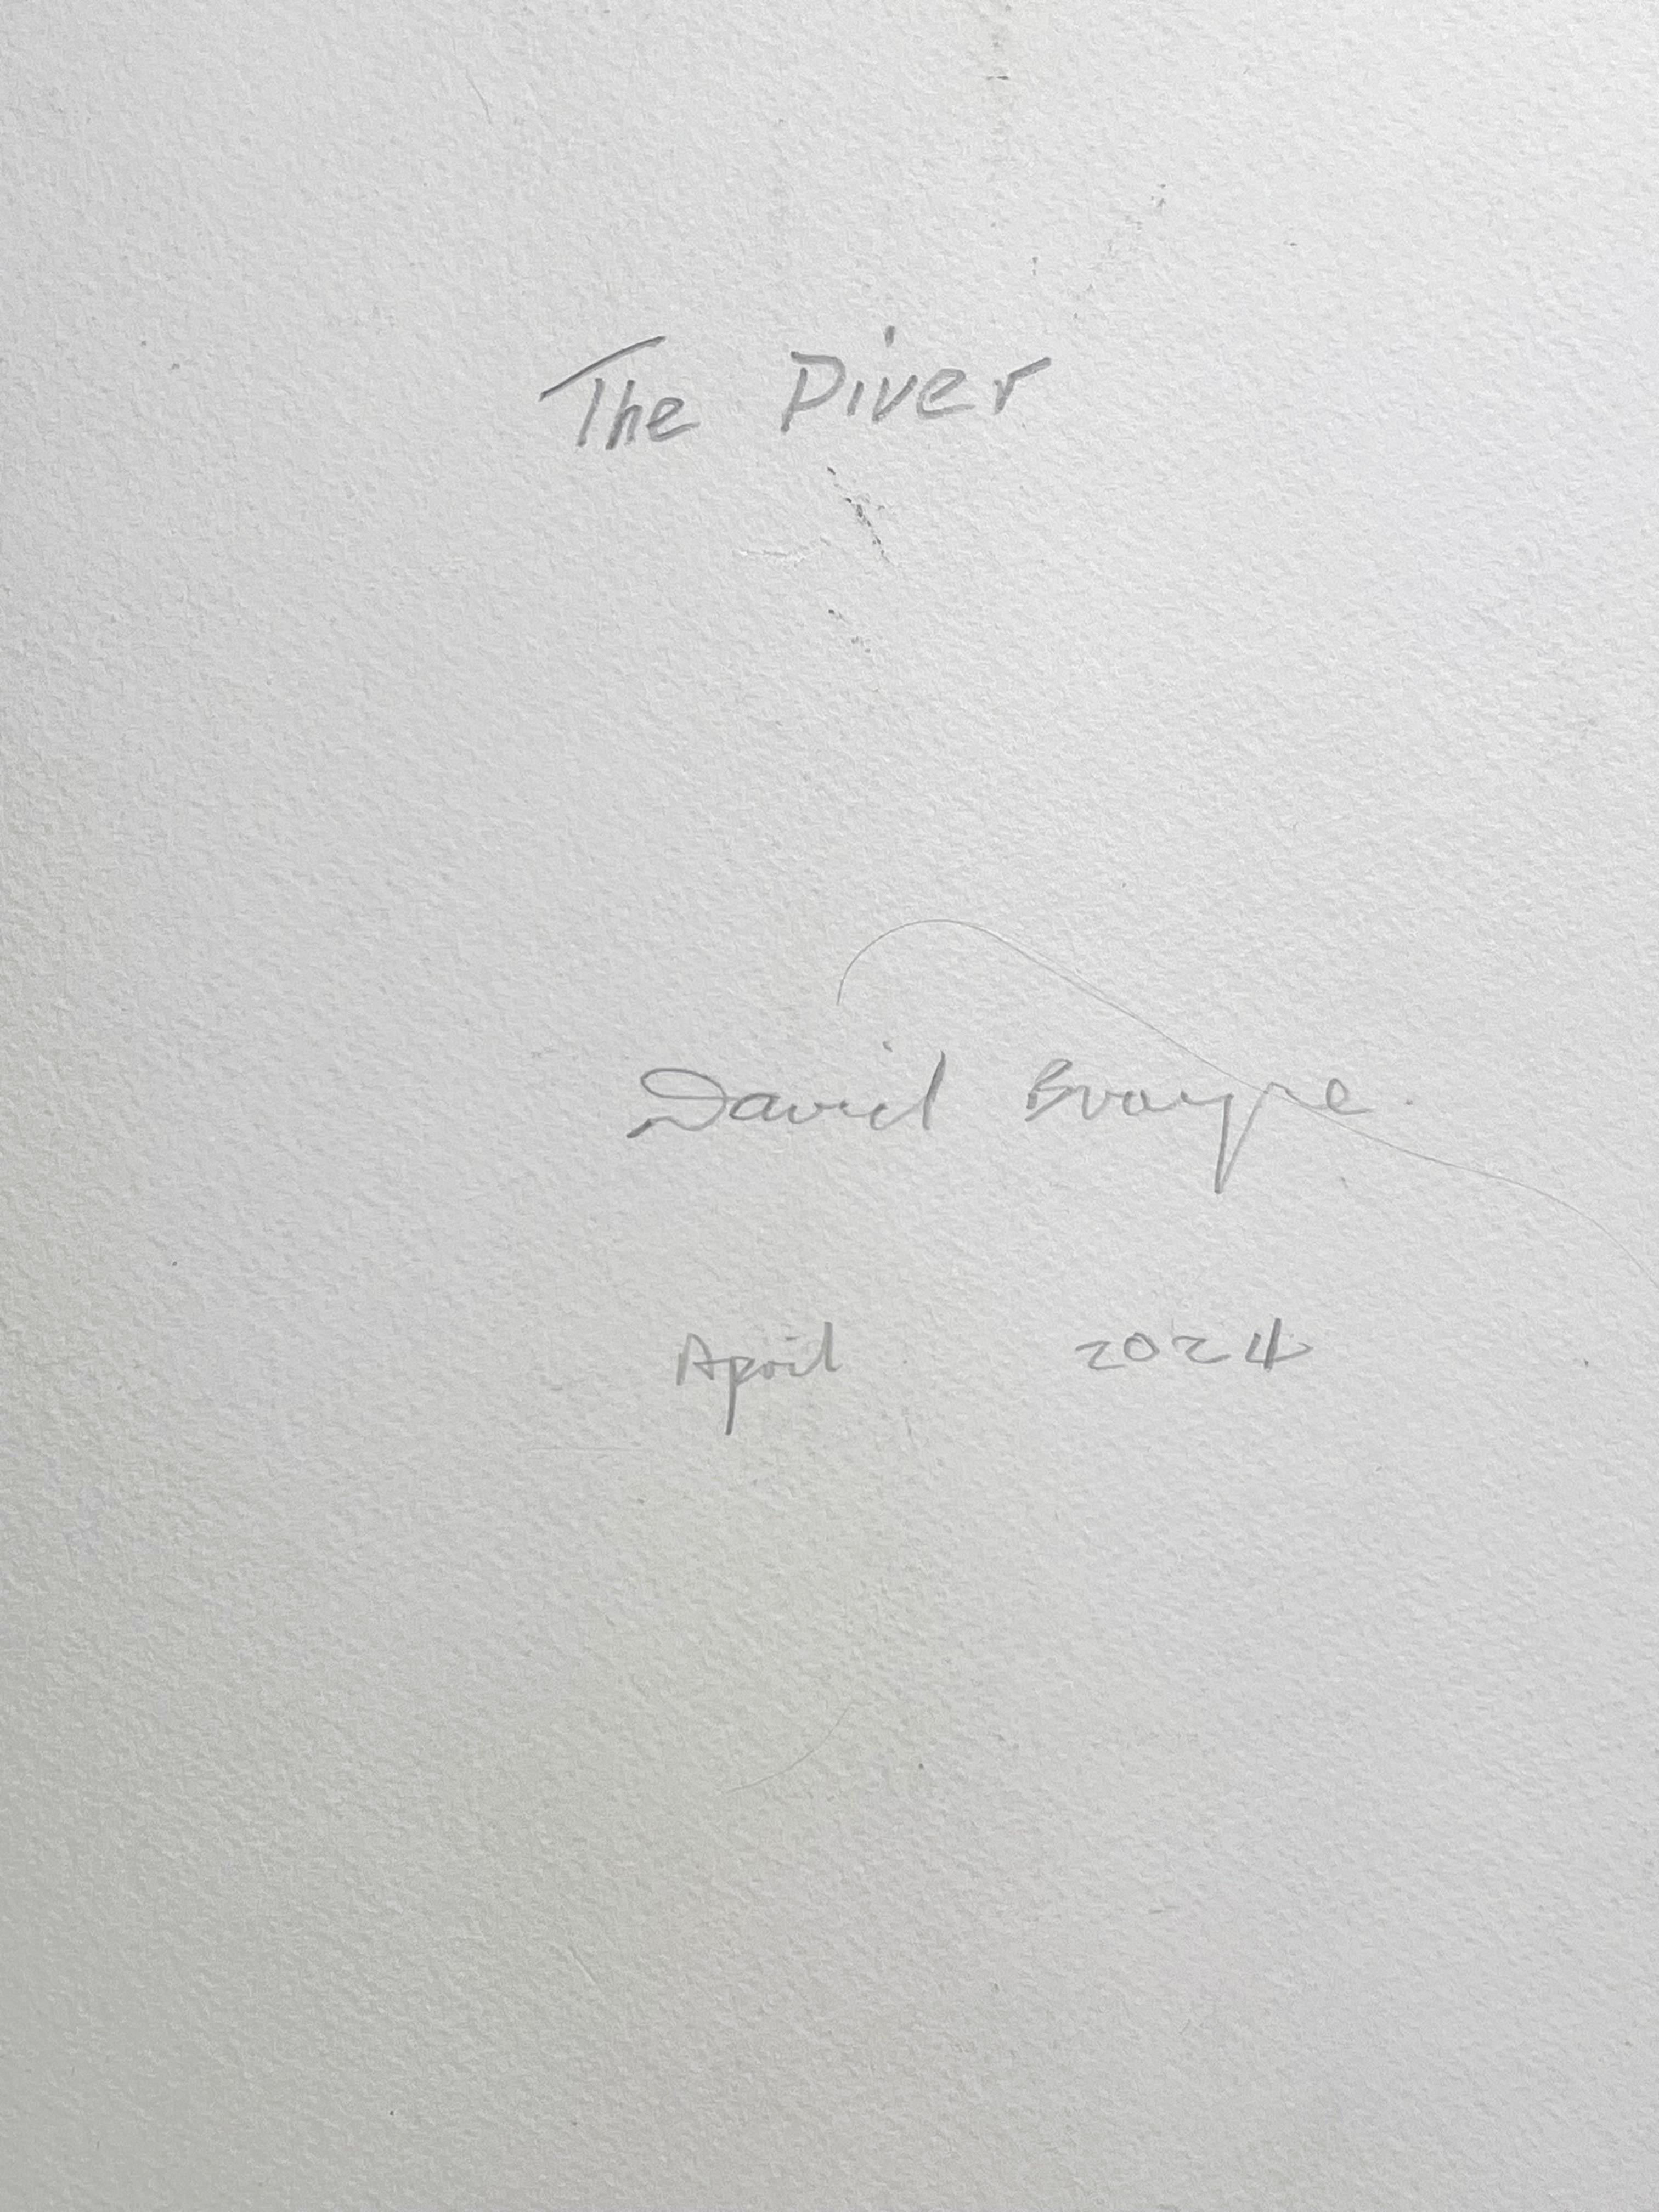 The Diver
David Brayne.
April 2024